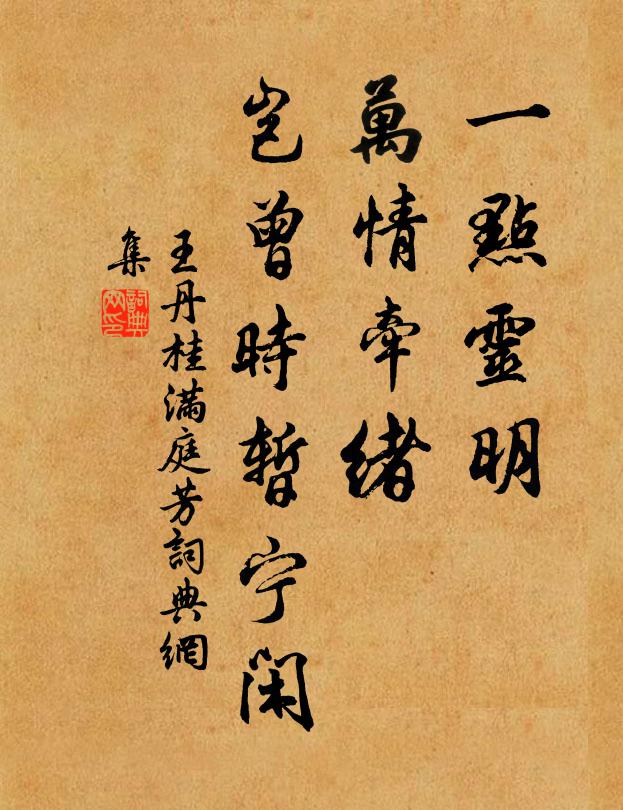 一點靈明
萬情牽緒
豈曾時暫宁閑
王丹桂滿庭芳詞典網
集
詞典網印